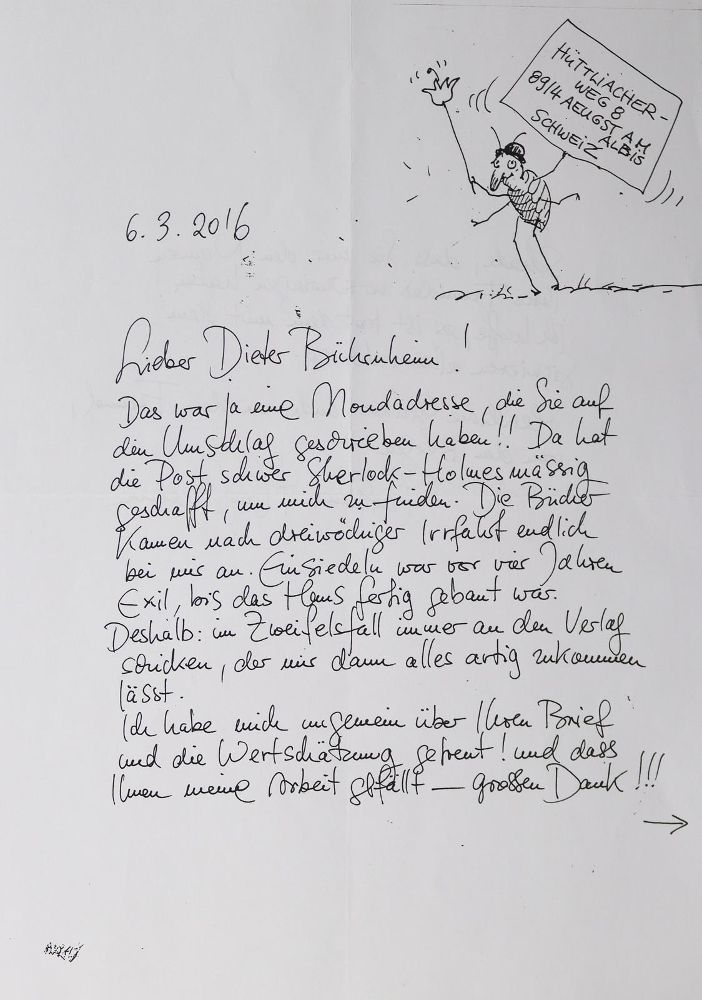 HÜTTLIACHER-
WEG 8
8914 AEUGST AM
ALBIS
SCHWEIZ
6. 3. 2016
Lieber Dieter !
Das war ja eine Mondadresse, die Sie auf
den Umschlag geschrieben haben!! Da hat
die Post schwer Sherlock-Holmes mässig
geschafft, um mich zu finden. Die Bücher
kamen nach dreiwöchiger Irrfahrt endlich
bei mir an. Einsiedeln war vor vier Jahren
Exil, bis das Haus fertig gebaut war.
Deshalb: im Zweifelsfall immer an den Verlag
schicken, der mir dann alles artig zukommen
lässt.
Ich habe mich ungemein über Ihren Brief
und die Wertschätzung gefreut! und dass
Ihnen meine Arbeit gefällt — grossen Dank !!!
→